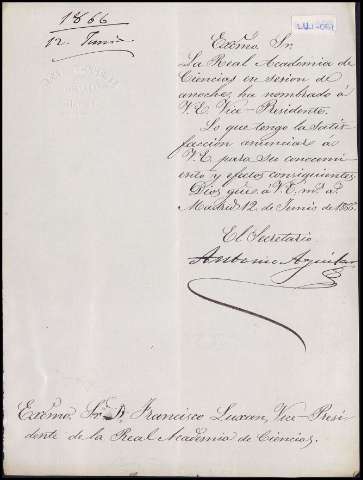 1866
12. Junio
Exc̃mo. Sr.
La Real Academia de
Ciencias en sesion de
anoche, ha nombrado á
V. E. Vice-Presidente.
Lo que tengo la satis-
faccion anunciar á
V. E. para su conocimi-
ento y efectos consiguientes
Dios gũe á V. E. m.s a.s
Madrid 12 de Junio de 1866.
El Secretario
Antonio Aguilar
Exc̃mo. Sr. D. Francisco Luxan, Vice-Presi-
dente de la Real Academia de Ciencias.